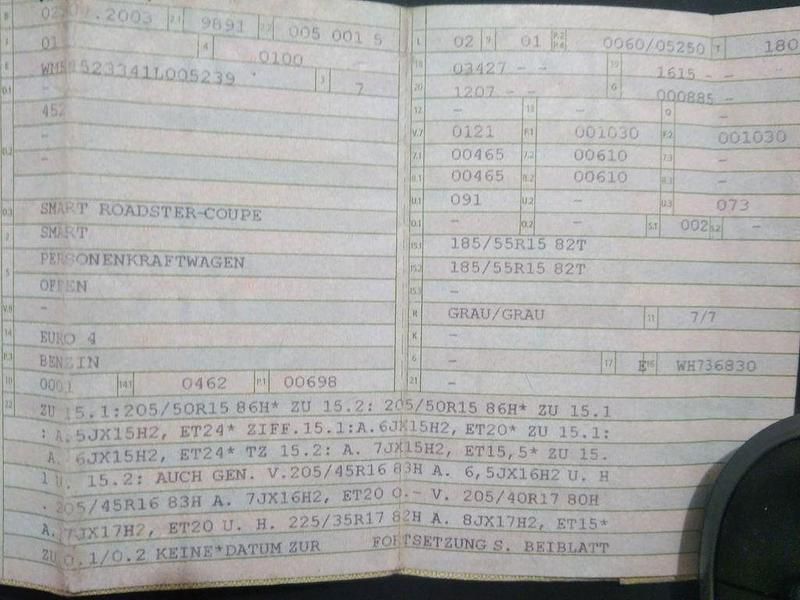 B 02.07.2003 2.1 9891 2.2 005 001 5
J 01 4 0100
E 1L005239 3 7
D.1 -
452
-
D.2 -
D.3 SMART ROADSTER-COUPE
2 SMART
5 PERSONENKRAFTWAGEN
OFFEN
V.9 -
14 EURO 4
P.3 BENZIN
10 0001 14.1 0462 P.1 00698
L 02 9 01 P.2 P.4 0060/05250 T 180
18 03427 - - 19 1615 - -
20 1207 - - G 000885 -
12 - 13 - Q -
V.7 0121 F.1 001030 F.2 001030
7.1 00465 7.2 00610 7.3 -
8.1 00465 8.2 00610 8.3 -
U.1 091 U.2 - U.3 073
O.1 - O.2 - S.1 002 S.2 -
15.1 185/55R15 82T
15.2 185/55R15 82T
15.3 -
R GRAU/GRAU 11 7/7
K -
6 - 17 E 16 WH736830
21 -
22 ZU 15.1:205/50R15 86H* ZU 15.2: 205/50R15 86H* ZU 15.1
: A.5JX15H2, ET24* ZIFF.15.1:A.6JX15H2, ET20* ZU 15.1:
A. 6JX15H2, ET24* TZ 15.2: A. 7JX15H2, ET15,5* ZU 15.
1 U. 15.2: AUCH GEN. V.205/45R16 83H A. 6,5JX16H2 U. H
. 205/45R16 83H A. 7JX16H2, ET20 O.- V. 205/40R17 80H
A. 7JX17H2, ET20 U. H. 225/35R17 82H A. 8JX17H2, ET15*
ZU 0.1/0.2 KEINE*DATUM ZUR FORTSETZUNG S. BEIBLATT